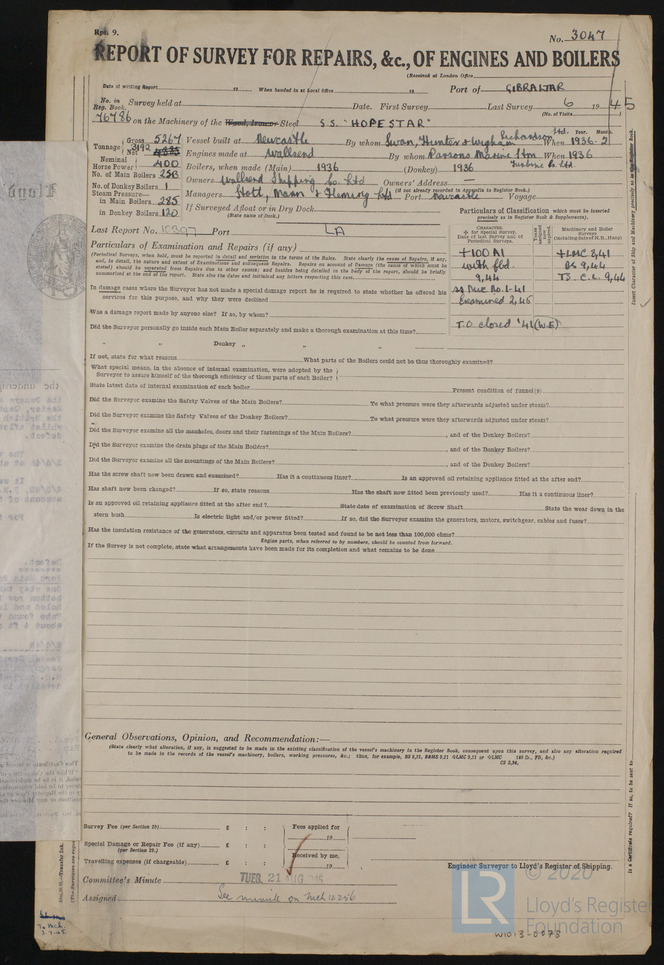 Rpt. 9.
No. 3047
REPORT OF SURVEY FOR REPAIRS, &c., OF ENGINES AND BOILERS
(Received at London Office
Date of writing Report 19 When handed in at Local Office 19 Port of GIBRALTAR
No. in Reg. Book. Survey held at Date. First Survey Last Survey 6 1945
(No. of Visits )
76786 on the Machinery of the Wood, Iron or Steel S.S. "HOPESTAR"
Tonnage Gross 5267 Vessel built at Newcastle By whom Swan, Hunter & Wigham Richardson Ltd. When 1936-2
Net 3192
Engines made at Wallsend By whom Parsons Marine Stm Turbine Co. Ltd. When 1936
Nominal Horse Power 400 Boilers, when made (Main) 1936 (Donkey) 1936
No. of Main Boilers 2SB
No. of Donkey Boilers 1 Owners Wallsend Shipping Co. Ltd Owners' Address
(if not already recorded in Appendix to Register Book.)
Steam Pressure in Main Boilers 225 Managers Stott, Mann & Fleming Ltd Port Newcastle Voyage
in Donkey Boilers 120 If Surveyed Afloat or in Dry Dock
(State name of Dock.)
Last Report No. 10397 Port LA
Particulars of Classification which must be inserted precisely as in Register Book & Supplements).
CHARACTER.
Machinery and Boiler Surveys
+100 A1 +LMC 8,41
with fbd BS 9,44
9,44 TS. C.L. 9,44
SS Nwc No.1-41
Examined 2,45
T.O. closed '41 (W.E)
Particulars of Examination and Repairs (if any)
In damage cases where the Surveyor has not made a special damage report he is required to state whether he offered his
services for this purpose, and why they were declined
Was a damage report made by anyone else? If so, by whom?
Did the Surveyor personally go inside each Main Boiler separately and make a thorough examination at this time?
" " Donkey " " "
If not, state for what reasons What parts of the Boilers could not be thus thoroughly examined?
What special means, in the absence of internal examination, were adopted by the
Surveyor to assure himself of the thorough efficiency of those parts of each Boiler?
State latest date of internal examination of each boiler Present condition of funnel(s)
Did the Surveyor examine the Safety Valves of the Main Boilers? To what pressure were they afterwards adjusted under steam?
Did the Surveyor examine the Safety Valves of the Donkey Boilers? To what pressure were they afterwards adjusted under steam?
Did the Surveyor examine all the manholes, doors and their fastenings of the Main Boilers? , and of the Donkey Boilers?
Did the Surveyor examine the drain plugs of the Main Boilers? , and of the Donkey Boilers?
Did the Surveyor examine all the mountings of the Main Boilers? , and of the Donkey Boilers?
Has the screw shaft now been drawn and examined? Has it a continuous liner? Is an approved oil retaining appliance fitted at the after end?
Has shaft now been changed? If so, state reasons Has the shaft now fitted been previously used? Has it a continuous liner?
Is an approved oil retaining appliance fitted at the after end? State date of examination of Screw Shaft State the wear down in the
stern bush Is electric light and/or power fitted? If so, did the Surveyor examine the generators, motors, switchgear, cables and fuses?
Has the insulation resistance of the generators, circuits and apparatus been tested and found to be not less than 100,000 ohms?
Engine parts, when referred to by numbers, should be counted from forward.
If the Survey is not complete, state what arrangements have been made for its completion and what remains to be done
General Observations, Opinion, and Recommendation:—
(State clearly what alteration, if any, is suggested to be made in the existing classification of the vessel's machinery in the Register Book, consequent upon this survey, and also any alteration required
to be made in the records of the vessel's machinery, boilers, working pressures, &c.;
Survey Fee (per Section 29) £ : : Fees applied for
19
Special Damage or Repair Fee (if any) £ : :
(per Section 29.)
Received by me,
Travelling expenses (if chargeable) £ : : 19
Engineer Surveyor to Lloyd's Register of Shipping.
Committee's Minute TUES. 21 AUG 1945
Assigned See minute on
© 2020
LR
Lloyd's Register
Foundation
W1013-0073